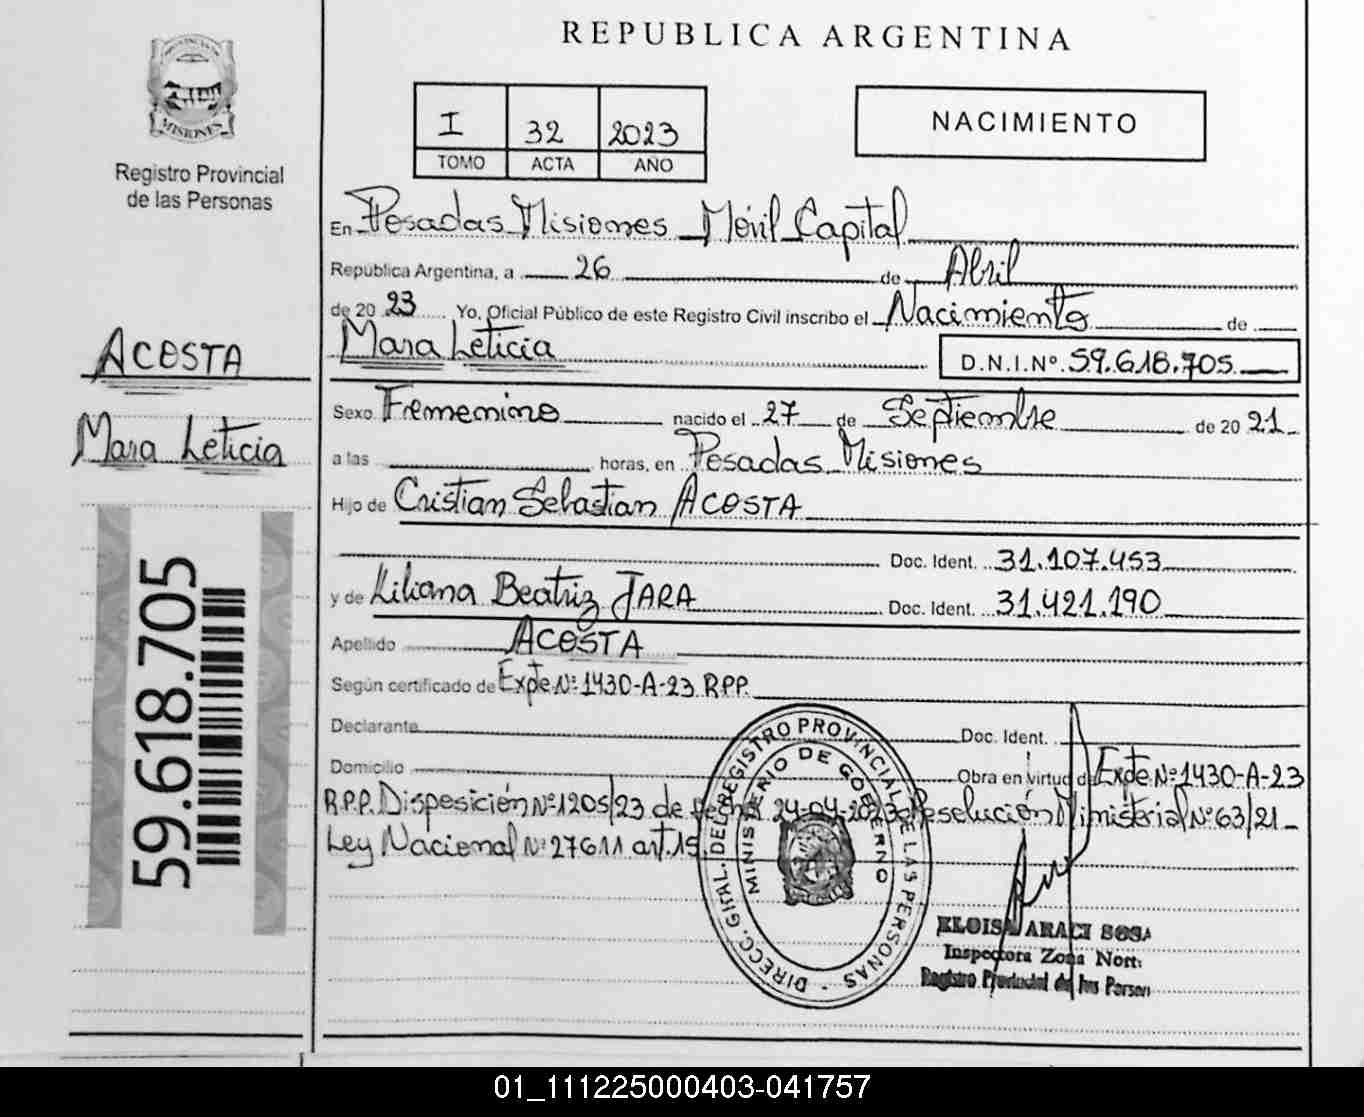 REPUBLICA ARGENTINA
PROVINCIA DE
MISIONES
Registro Provincial
de las Personas
I 32 2023
TOMO ACTA AÑO
NACIMIENTO
En Posadas Misiones Móvil Capital
República Argentina, a 26 de Abril
de 20 23 Yo, Oficial Público de este Registro Civil inscribo el Nacimiento de
Mara Leticia D.N.I.Nº 59.618.705
ACOSTA
Mara Leticia
59.618.705
Sexo Fremenino nacido el 27 de Septiembre de 20 21
a las horas, en Posadas Misiones
Hijo de Cristian Sebastian ACOSTA
Doc. Ident. 31.107.453
y de Liliana Beatriz JARA Doc. Ident. 31.421.190
Apellido ACOSTA
Según certificado de Expte Nº 1430-A-23 R.P.P.
Declarante Doc. Ident.
Domicilio Obra en virtud de Expte Nº 1430-A-23
R.P.P. Disposición Nº 1205/23 de fecha 24-04-2023 Resolución Ministerial Nº 63/21
Ley Nacional Nº 27611 art. 15.
DIRECC. GRAL. DEL REGISTRO PROVINCIAL DE LAS PERSONAS
MINISTERIO DE GOBIERNO
ELOISA ARACI SOSA
Inspectora Zona Norte
Registro Provincial de las Person
01_111225000403-041757